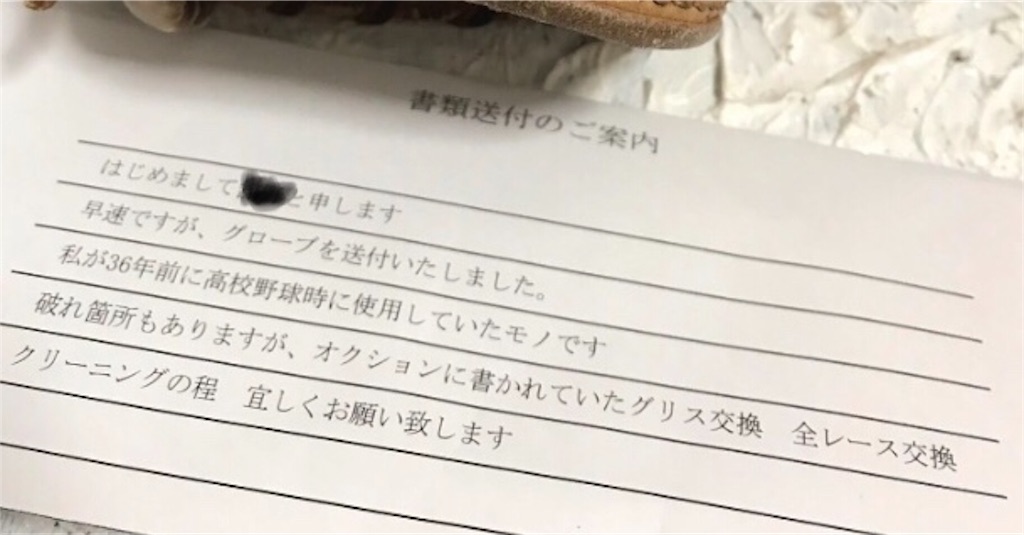 書類送付のご案内
はじめまして と申します
早速ですが、グローブを送付いたしました。
私が36年前に高校野球時に使用していたモノです
破れ箇所もありますが、オクションに書かれていたグリス交換 全レース交換
クリーニングの程 宜しくお願い致します